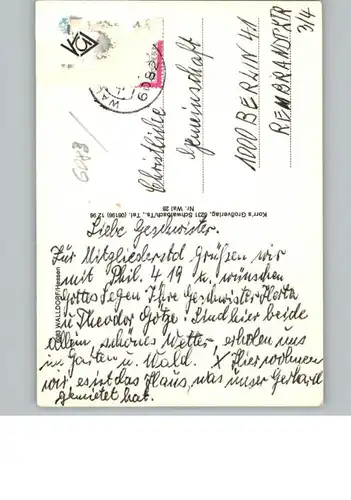 Liebe Geschwister.
Für Mitgliederstd grüßen wir
mit Phil. 4 19 u. wünschen
Gottes Segen Ihre Geschwister Herta
u Theodor Götze. Sind hier beide
allein, schönes Wetter, erholen uns
im Garten u. Wald. X Hier wohnen
wir, es ist das Haus, was unser Gerhard
gemietet hat.
Christliche
Gemeinschaft
1000 BERLIN 41
REMBRANDTSTR
3/4
6083
WALLDORF/Hessen
Korr's Großverlag, 6231 Schwalbach/Ts., Tel. (06196) 12 96
Nr. Wal 28